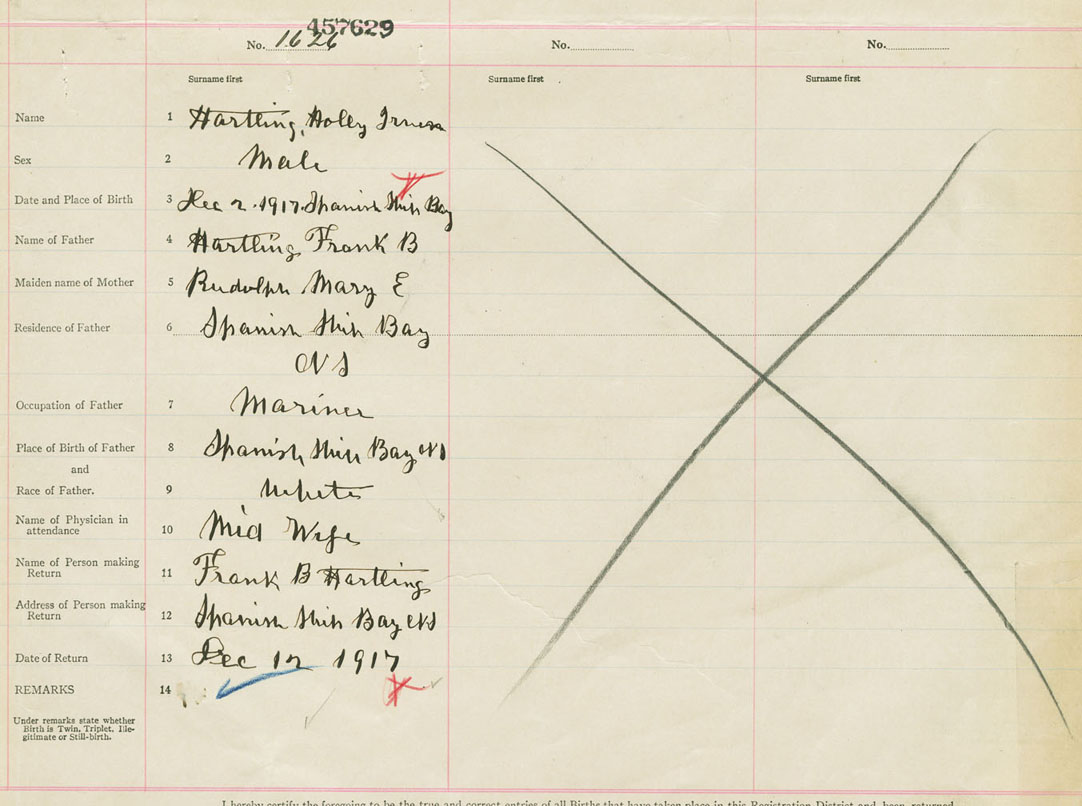 457629
No. 1626 No. No.
Surname first Surname first Surname first
Name 1 Hartling, Holly
Sex 2 Male
Date and Place of Birth 3 Dec 2. 1917. Spanish Ship Bay
Name of Father 4 Hartling Frank B
Maiden name of Mother 5 Rudolph Mary E
Residence of Father 6 Spanish Ship Bay
NS
Occupation of Father 7 Mariner
Place of Birth of Father 8 Spanish Ship Bay NS
and
Race of Father. 9 White
Name of Physician in
attendance 10 Mid Wife
Name of Person making
Return 11 Frank B Hartling
Address of Person making
Return 12 Spanish Ship Bay NS
Date of Return 13 Dec 12 1917
REMARKS 14
Under remarks state whether
Birth is Twin, Triplet, Ille-
gitimate or Still-birth.
I hereby certify the foregoing to be the true and correct entries of all Births that have taken place in this Registration District and been returned